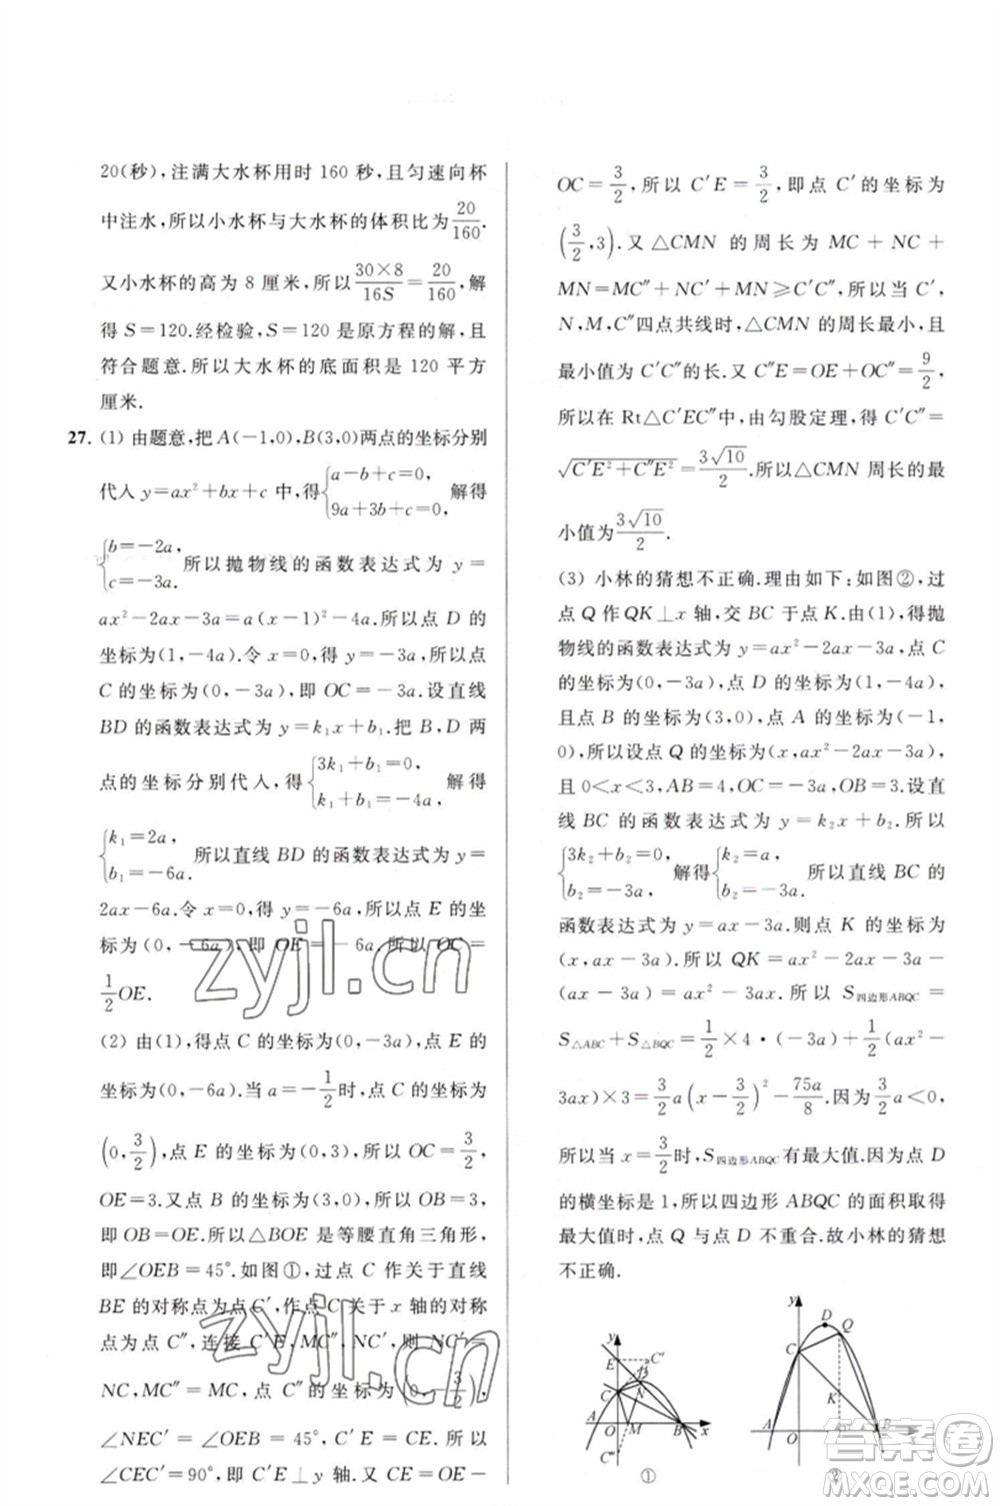 20(秒),注满大水杯用时 160 秒,且匀速向杯
中注水,所以小水杯与大水杯的体积比为20/160.
又小水杯的高为 8 厘米,所以(30×8)/(16S)=20/160,解
得 S=120.经检验,S=120 是原方程的解,且
符合题意.所以大水杯的底面积是 120 平方
厘米.
27. (1) 由题意,把 A(-1,0),B(3,0)两点的坐标分别
代入 y=ax²+bx+c 中,得{a-b+c=0, 9a+3b+c=0, 解得
{b=-2a, c=-3a. 所以抛物线的函数表达式为 y=
ax²-2ax-3a=a(x-1)²-4a.所以点 D 的
坐标为(1,-4a).令 x=0,得 y=-3a,所以点
C 的坐标为(0,-3a),即 OC=-3a.设直线
BD 的函数表达式为 y=k₁x+b₁.把 B,D 两
点的坐标分别代入,得{3k₁+b₁=0, k₁+b₁=-4a, 解得
{k₁=2a, b₁=-6a. 所以直线 BD 的函数表达式为 y=
2ax-6a.令 x=0,得 y=-6a,所以点 E 的坐
标为(0,-6a),即 OE=-6a.所以 OC=
1/2 OE.
(2) 由(1),得点 C 的坐标为(0,-3a),点 E 的
坐标为(0,-6a).当 a=-1/2时,点 C 的坐标为
(0,3/2),点 E 的坐标为(0,3),所以 OC=3/2,
OE=3.又点 B 的坐标为(3,0),所以 OB=3,
即 OB=OE.所以△BOE 是等腰直角三角形,
即∠OEB=45°.如图①,过点 C 作关于直线
BE 的对称点为点 C′,作点 C 关于 x 轴的对称
点为点 C″,连接 C′E,MC″,NC′,则 NC′=
NC,MC″=MC,点 C″的坐标为(0,-3/2),
∠NEC′=∠OEB=45°,C′E=CE.所以
∠CEC′=90°,即 C′E⊥y 轴.又 CE=OE-
OC=3/2,所以 C′E=3/2,即点 C′的坐标为
(3/2,3).又△CMN 的周长为 MC+NC+
MN=MC″+NC′+MN≥C′C″,所以当 C′,
N,M,C″四点共线时,△CMN 的周长最小,且
最小值为 C′C″的长.又 C″E=OE+OC″=9/2,
所以在 Rt△C′EC″中,由勾股定理,得 C′C″=
√(C′E²+C″E²)=3√10/2.所以△CMN 周长的最
小值为3√10/2.
(3) 小林的猜想不正确.理由如下:如图②,过
点 Q 作 QK⊥x 轴,交 BC 于点 K.由(1),得抛
物线的函数表达式为 y=ax²-2ax-3a,点 C
的坐标为(0,-3a),点 D 的坐标为(1,-4a),
且点 B 的坐标为(3,0),点 A 的坐标为(-1,
0),所以设点 Q 的坐标为(x,ax²-2ax-3a),
且 0<x<3,AB=4,OC=-3a,a<0.设直
线 BC 的函数表达式为 y=k₂x+b₂.所以
{3k₂+b₂=0, b₂=-3a, 解得{k₂=a, b₂=-3a. 所以直线 BC 的
函数表达式为 y=ax-3a.所以点 K 的坐标为
(x,ax-3a).所以 QK=ax²-2ax-3a-
(ax-3a)=ax²-3ax.所以 S四边形ABQC=
S△ABC+S△BQC=1/2×4·(-3a)+1/2(ax²-
3ax)×3=3/2 a(x-3/2)²-75a/8.因为3/2 a<0,
所以当 x=3/2时,S四边形ABQC有最大值.又点 D
的横坐标是 1,所以四边形 ABQC 的面积取得
最大值时,点 Q 与点 D 不重合.故小林的猜想
不正确.
y E C′ D C N A O M B x C″
①
y D Q C K A O B x
②
zyjl.cn
zyjl.cn
答案圈
MXQE.COM